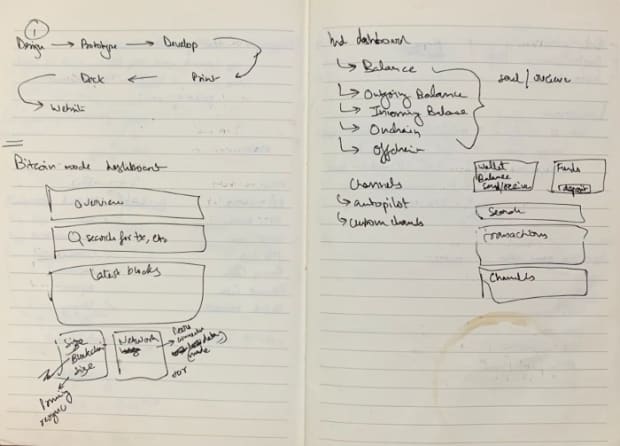 1
Design → Prototype → Develop
Deck ← Print
→ Website
Bitcoin node dashboard
Overview
Search for tx, etc
Latest blocks
Size
Blockchain
Size
Network
Peers
dashboard
↳ Balance
↳ Outgoing Balance
↳ Incoming Balance
↳ Onchain
↳ Offchain
send / receive
Channels
↳ autopilot
↳ custom channels
Wallet
Balance
send/receive
Funds
deposit
Search
Transactions
Channels